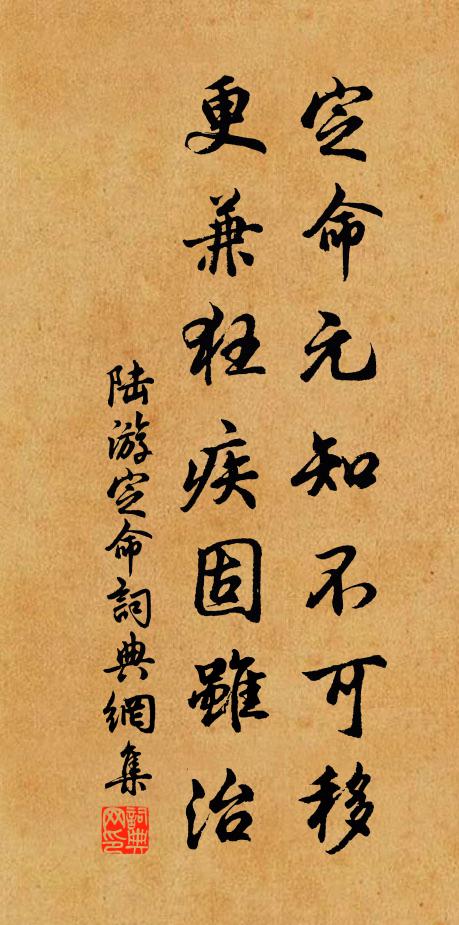 定命元知不可移
更兼狂疾固雖治
陆游定命詞典網集
詞典網印